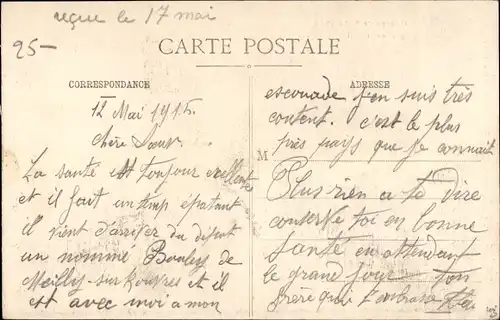 reçue le 17 mai
25-
CARTE POSTALE
CORRESPONDANCE
ADRESSE
M
12 Mai 1915.
Chère Soeur
La santé est toujour excellente
et il fait un temp épatant
il vient d'arriver du dépot
un nommé Bouley de
Meilly-sur-Rouvres et il
est avec moi a mon
escouade j'en suis très
content. c'est le plus
près pays que je connait
Plus rien a te dire
conserve toi en bonne
santé en attendant
le grand jour ton
frère qui t'embrasse